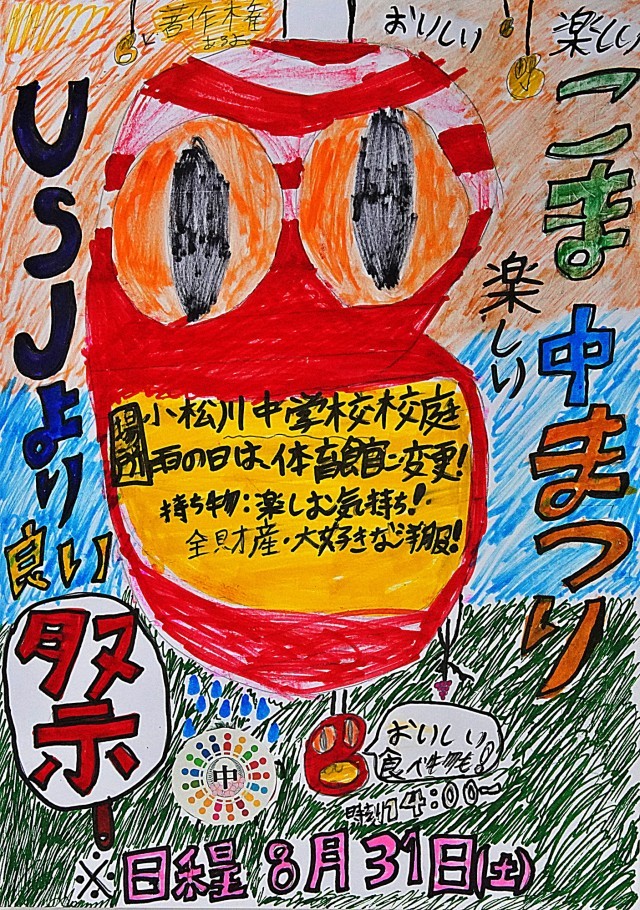 著作権
あるよ
おいしい
楽しい
こま中まつり
楽しい
USJより良い
祭
場所
小松川中学校校庭
雨の日は、体育館に変更!
持ち物:楽しむ気持ち!
全財産・大好きな洋服!
中
おいしい
食べ物も!
時刻14:00~
※日程 8月31日(土)